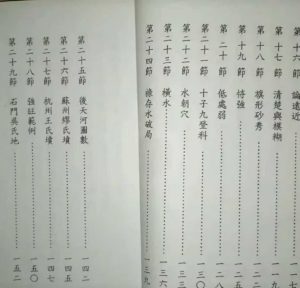 第十六節 論遠近
第十七節 清楚與模糊
第十八節 旗形砂秀
第十九節 恃強
第二十節 低處弱
第二十一節 十子九登科……一三〇
第二十二節 水朝穴
第二十三節 橫水……一三六
第二十四節 祿存水破局……一三九
第二十五節 後天河圖數……一四二
第二十六節 蘇州繆氏墳……一四五
第二十七節 杭州王氏墳……一四七
第二十八節 強旺範例……一五〇
第二十九節 石門吳氏地……一五二